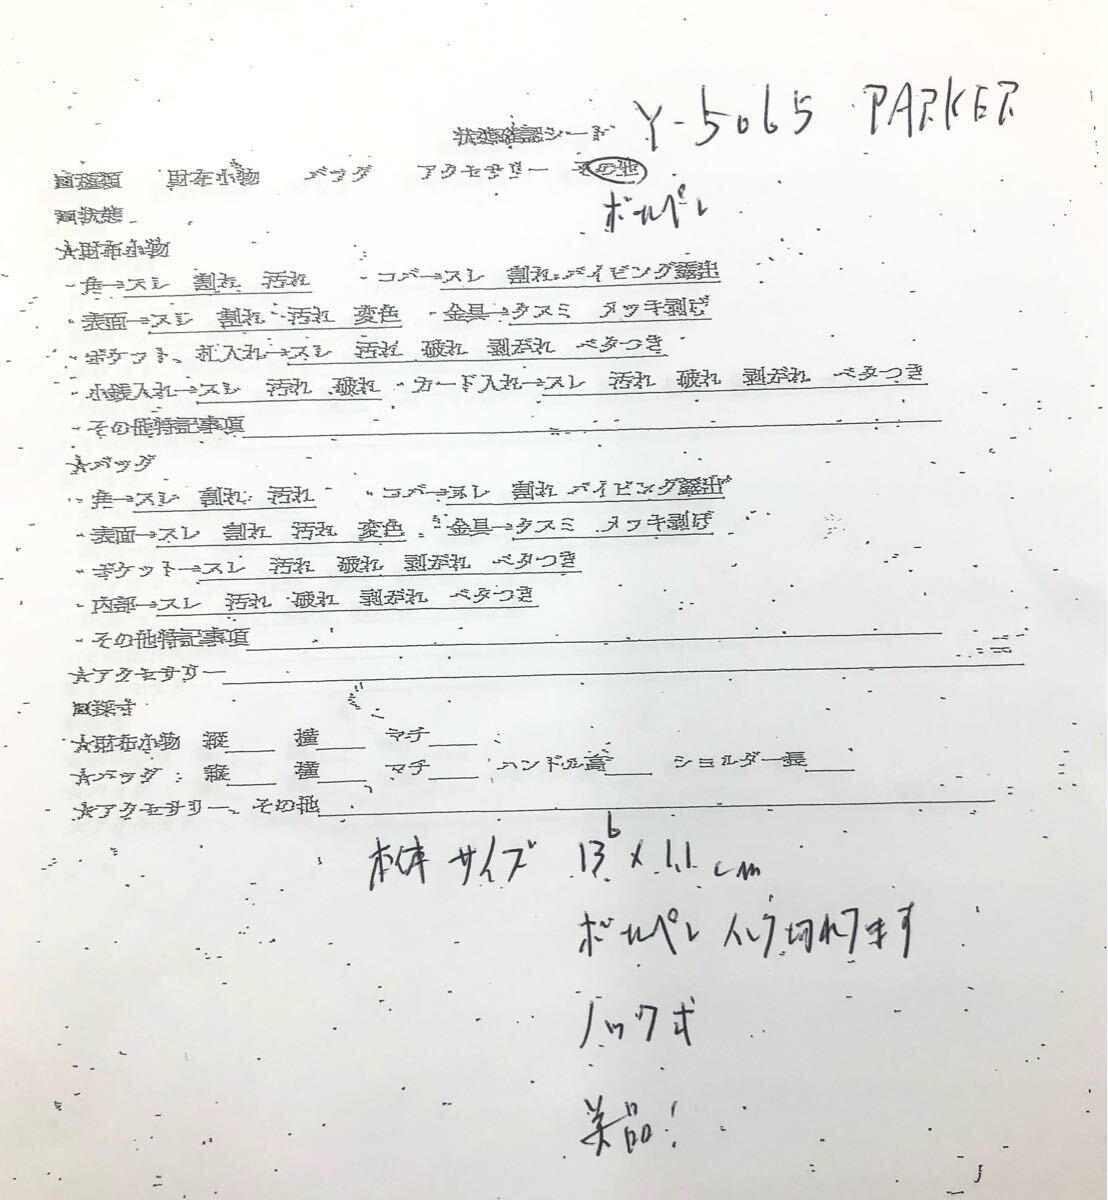 状態確認シート Y-5065 PARKER
■種類 財布小物 バッグ アクセサリー その他
ボールペン
■状態
★財布小物
・角→スレ 割れ 汚れ ・コバ→スレ 割れ パイピング露出
・表面→スレ 割れ 汚れ 変色 ・金具→クスミ メッキ剥げ
・ポケット、札入れ→スレ 汚れ 破れ 剥がれ ベタつき
・小銭入れ→スレ 汚れ 破れ ・カード入れ→スレ 汚れ 破れ 剥がれ ベタつき
・その他特記事項
★バッグ
・角→スレ 割れ 汚れ ・コバ→スレ 割れ パイピング露出
・表面→スレ 割れ 汚れ 変色 ・金具→クスミ メッキ剥げ
・ポケット→スレ 汚れ 破れ 剥がれ ベタつき
・内部→スレ 汚れ 破れ 剥がれ ベタつき
・その他特記事項
★アクセサリー
■採寸
★財布小物 縦 横 マチ
★バッグ 縦 横 マチ ハンドル高 ショルダー長
★アクセサリー、その他
本体サイズ 13.6×1.1cm
ボールペン インク切れてます
ノック式
美品!